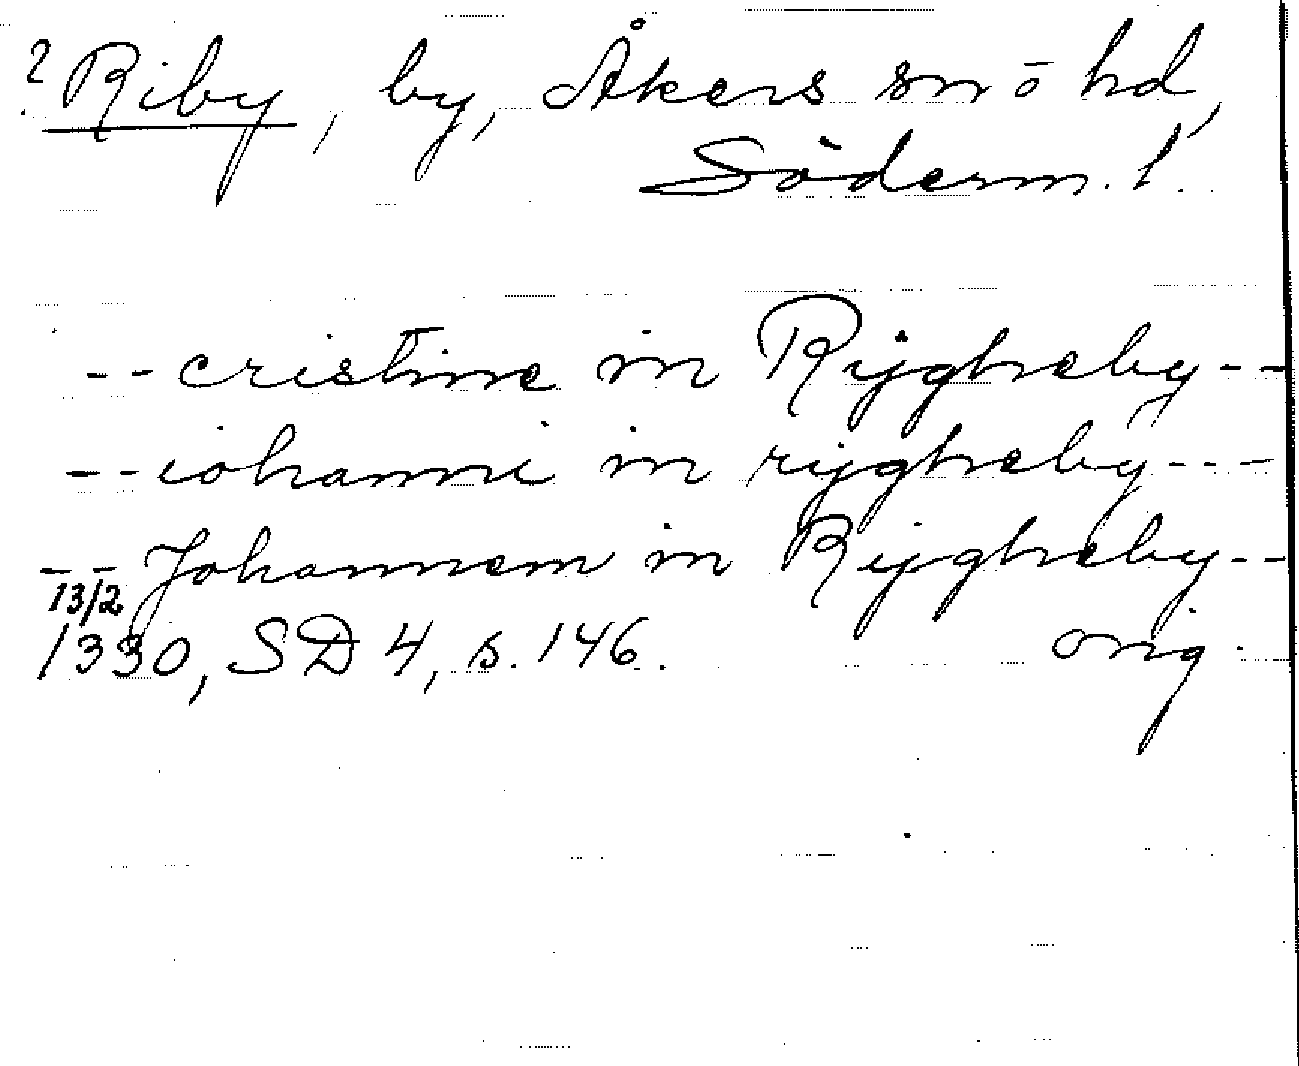 ? Riby, by, Åkers sn o hd,
Söderm. l.
-- cristine in Rijgheby --
-- iohanni in rijgheby ---
-- Johannem in Rijgheby --
13/2
1330, SD 4, s. 146. orig.